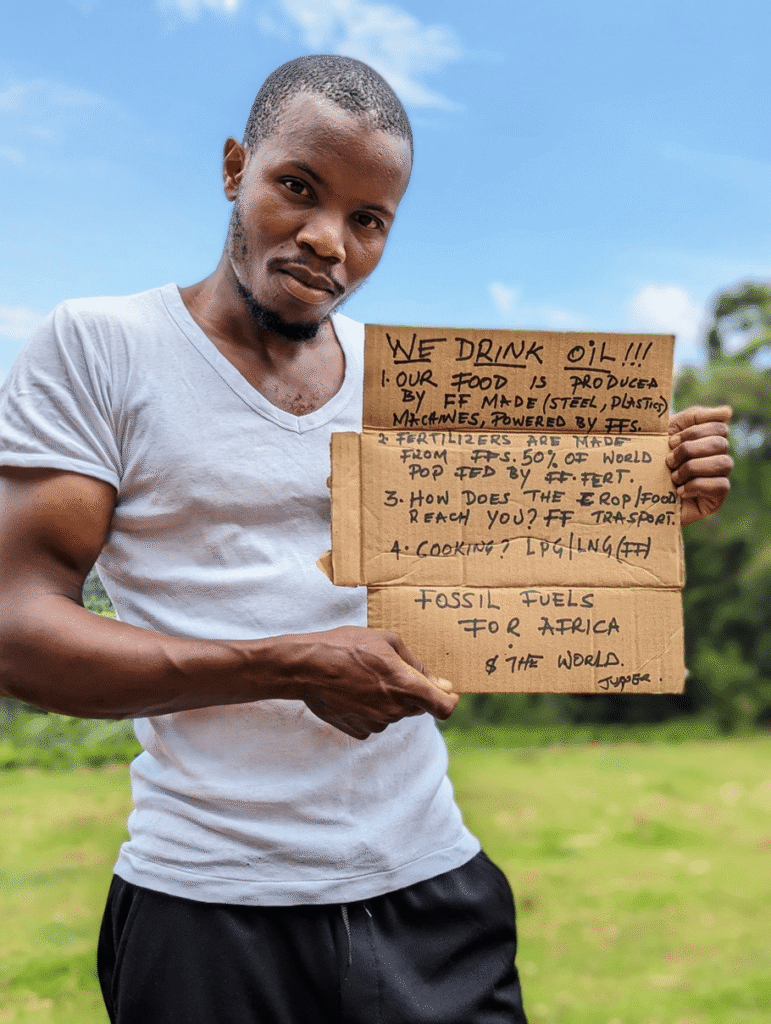 WE DRINK OIL!!!
1. OUR FOOD IS PRODUCED
BY FF MADE (STEEL, PLASTICS)
MACHINES, POWERED BY FFS.
2. FERTILIZERS ARE MADE
FROM FFS. 50% OF WORLD
POP FED BY FF. FERT.
3. HOW DOES THE CROP/FOOD
REACH YOU? FF TRASPORT.
4. COOKING? LPG/LNG (FF)
FOSSIL FUELS
FOR AFRICA
& THE WORLD.